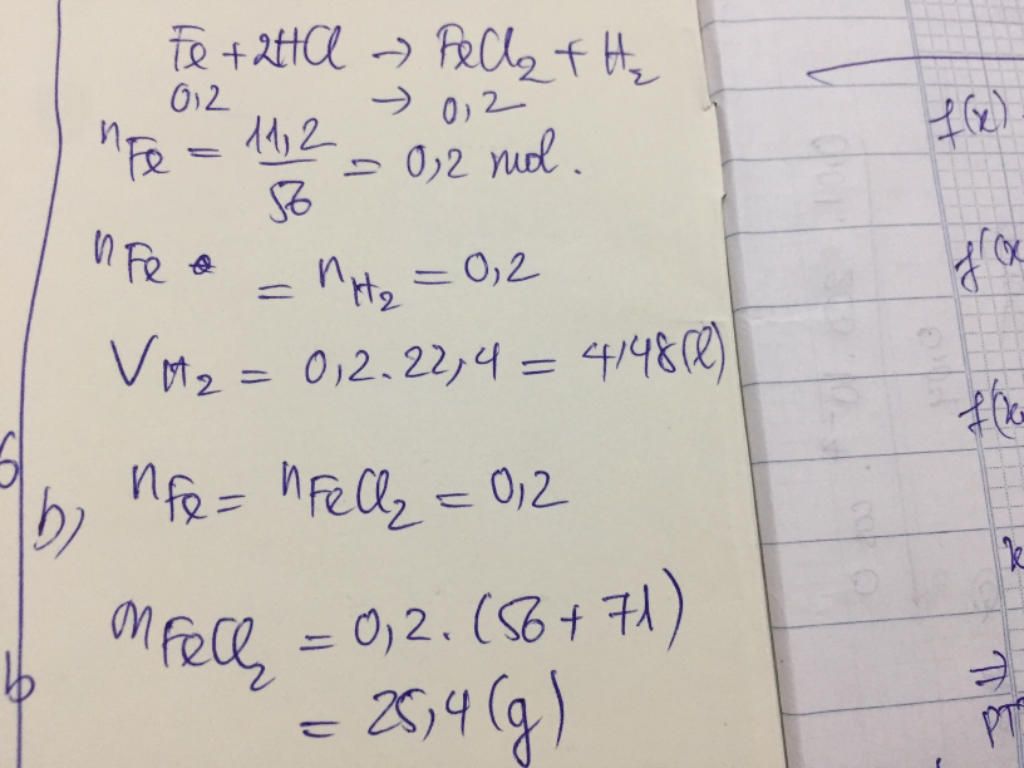 Fe + 2HCl → FeCl₂ + H₂
0,2 → 0,2
nFe = 11,2/56 = 0,2 mol.
nFe = nH₂ = 0,2
VH₂ = 0,2.22,4 = 4,48(l)
b) nFe = nFeCl₂ = 0,2
mFeCl₂ = 0,2.(56+71)
= 25,4(g)
6
b
f(x)
f'(x
f'(x
⇒
PT